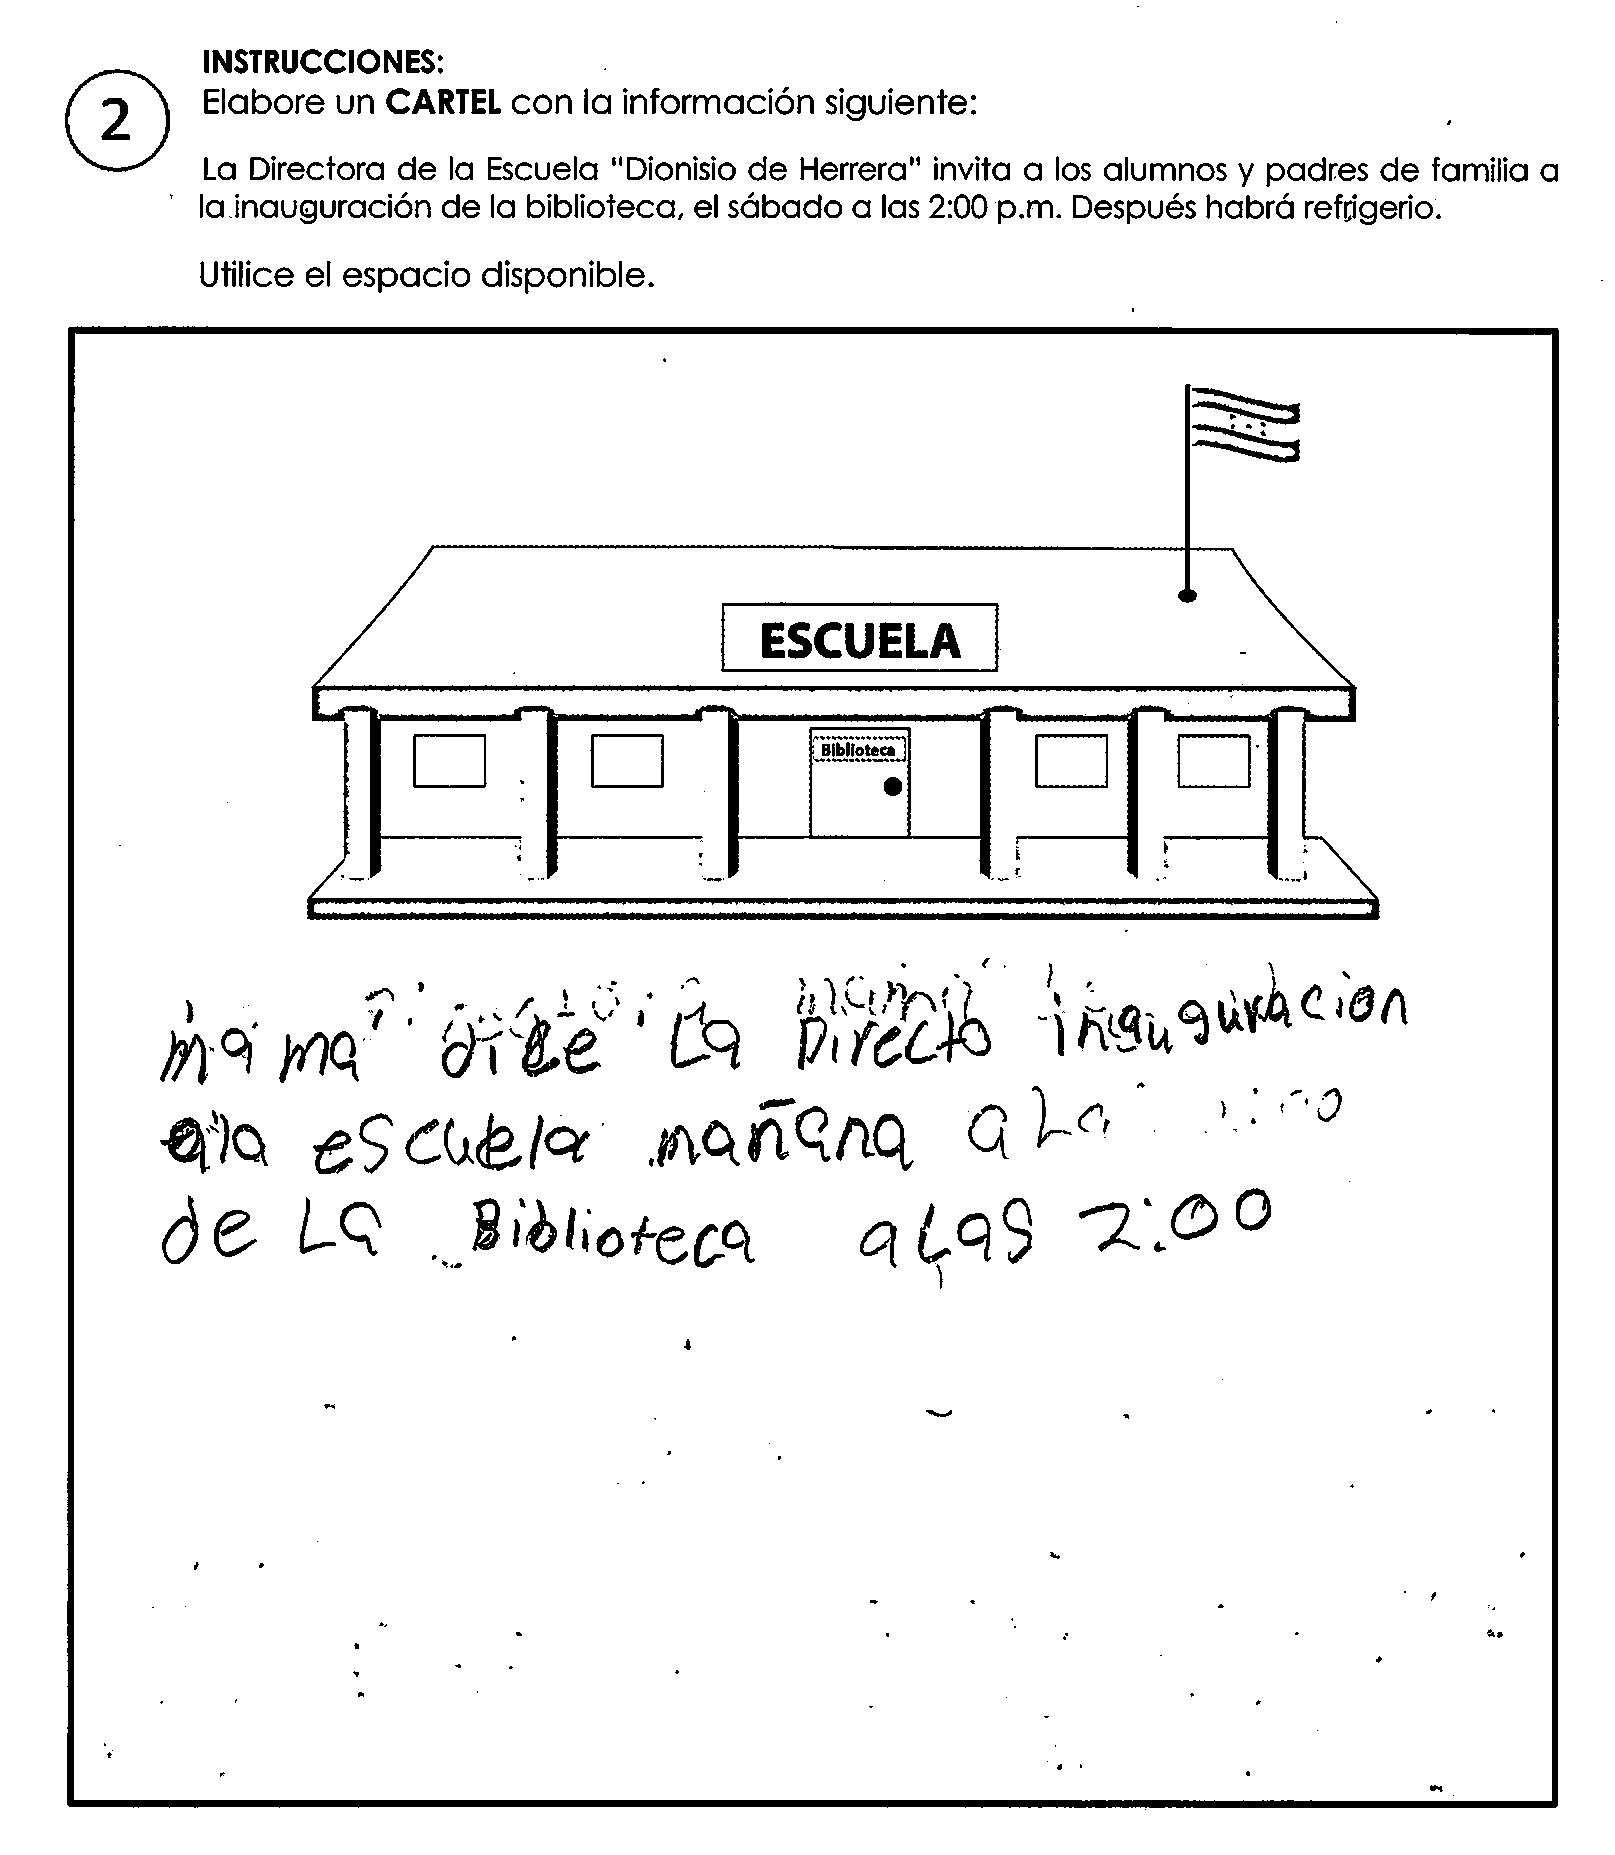 INSTRUCCIONES:
2
Elabore un CARTEL con la información siguiente:
La Directora de la Escuela "Dionisio de Herrera" invita a los alumnos y padres de familia a
la inauguración de la biblioteca, el sábado a las 2:00 p.m. Después habrá refrigerio.
Utilice el espacio disponible.
ESCUELA
Biblioteca
mama dice La Directo inauguracion
ala escuela mañana a La
de La Biblioteca a Las 2:00